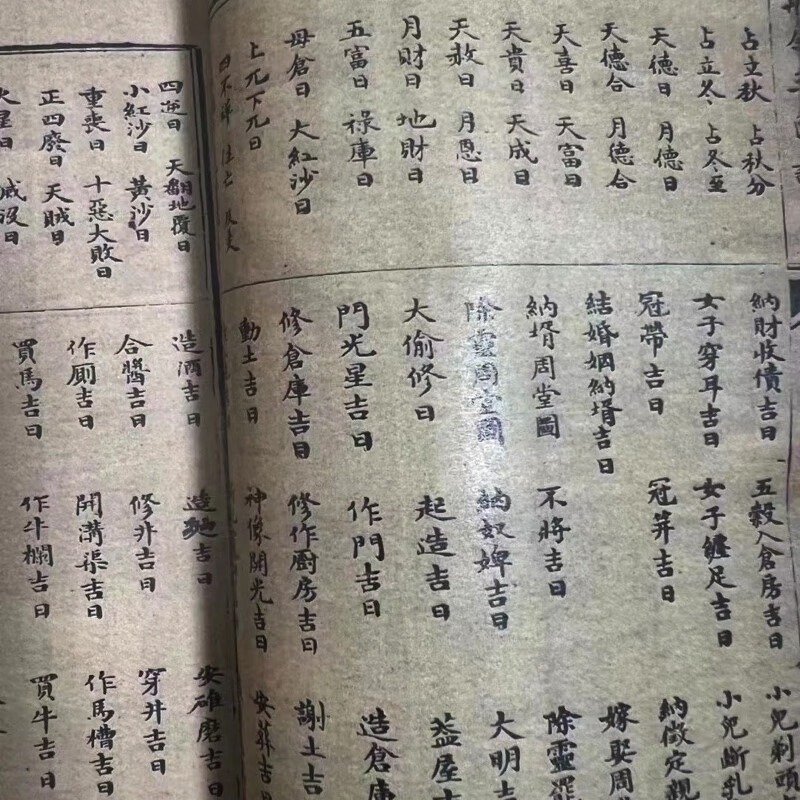 占立秋 占秋分
占立冬 占冬至
天德日 月德日
天德合 月德合
天喜日 天富日
天貴日 天成日
天赦日 月恩日
月財日 地財日
五富日 祿庫日
母倉日 大紅沙日
上兀下兀日
四不祥
納財收債吉日 五穀入倉房吉日 小兒剃頭
女子穿耳吉日 女子纏足吉日 小兒斷乳
冠帶吉日 冠笄吉日 納徵定親
結婚姻納壻吉日 嫁娶周
納壻周堂圖 不將吉日 除靈
除靈周堂圖 納奴婢吉日 大明吉
大偷修日 起造吉日 蓋屋吉
門光星吉日 作門吉日 造倉庫
修倉庫吉日 修作厨房吉日 謝土吉
動土吉日 神像開光吉日 安葬吉
四逆日 天翻地覆日
小紅沙日 黃沙日
重喪日 十惡大敗日
正四廢日 天賊日
火星日 滅沒日
造酒吉日 造麯吉日 安碓磨吉日
合醬吉日 修井吉日 穿井吉日
作厠吉日 開溝渠吉日 作馬槽吉日
買馬吉日 作牛欄吉日 買牛吉日